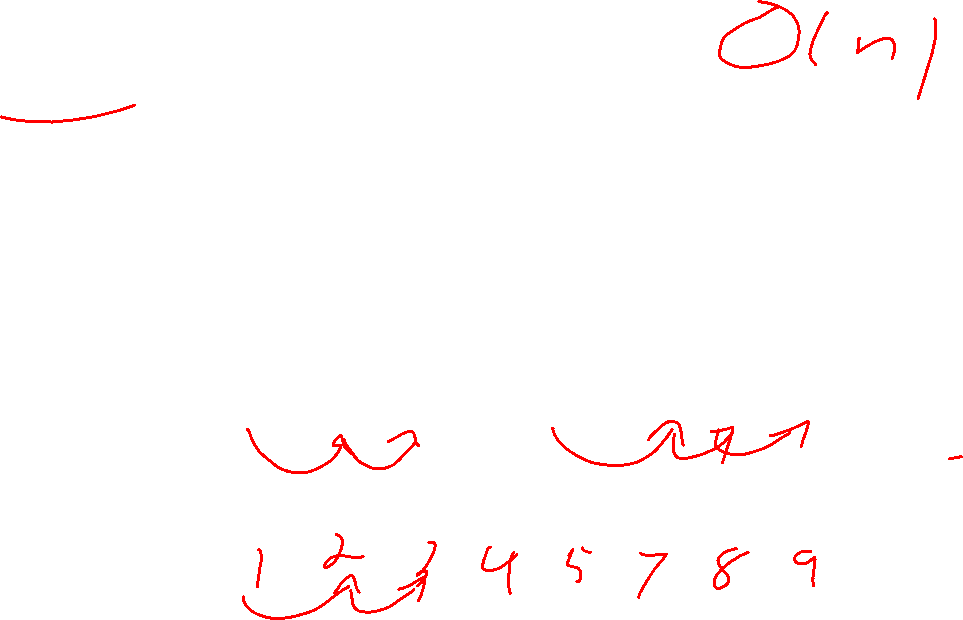 O(n)
1 2 3 4 5 7 8 9